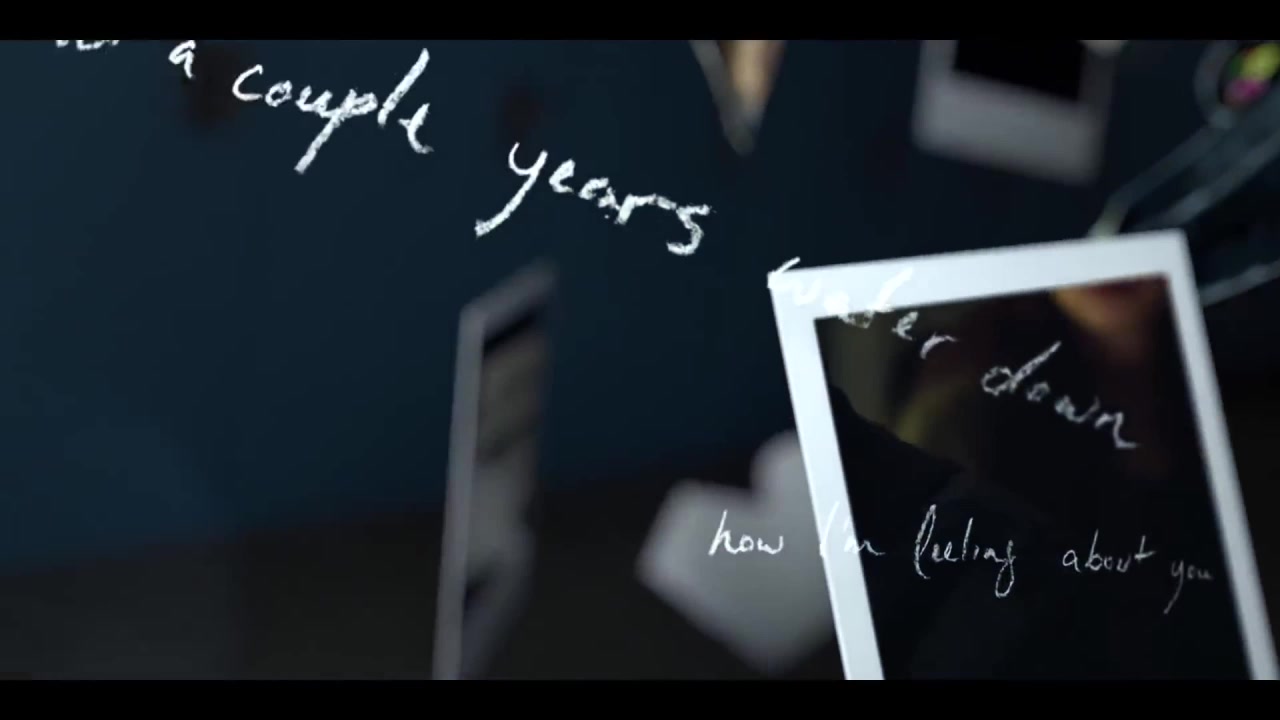 a couple years
water down
how I'm feeling about you